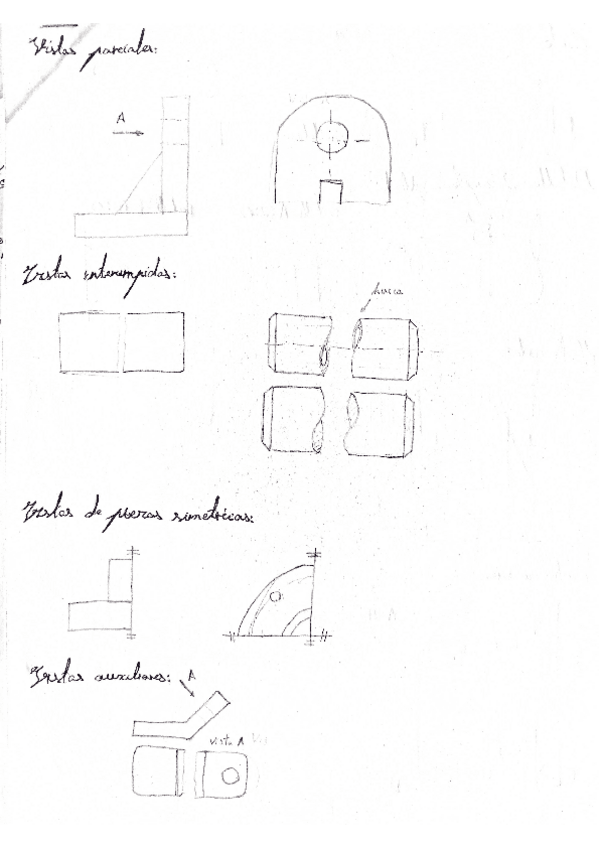 Vistas parciales:
A
Vistas interrumpidas:
hueca
Vistas de piezas simétricas:
Vistas auxiliares:
A
vista A